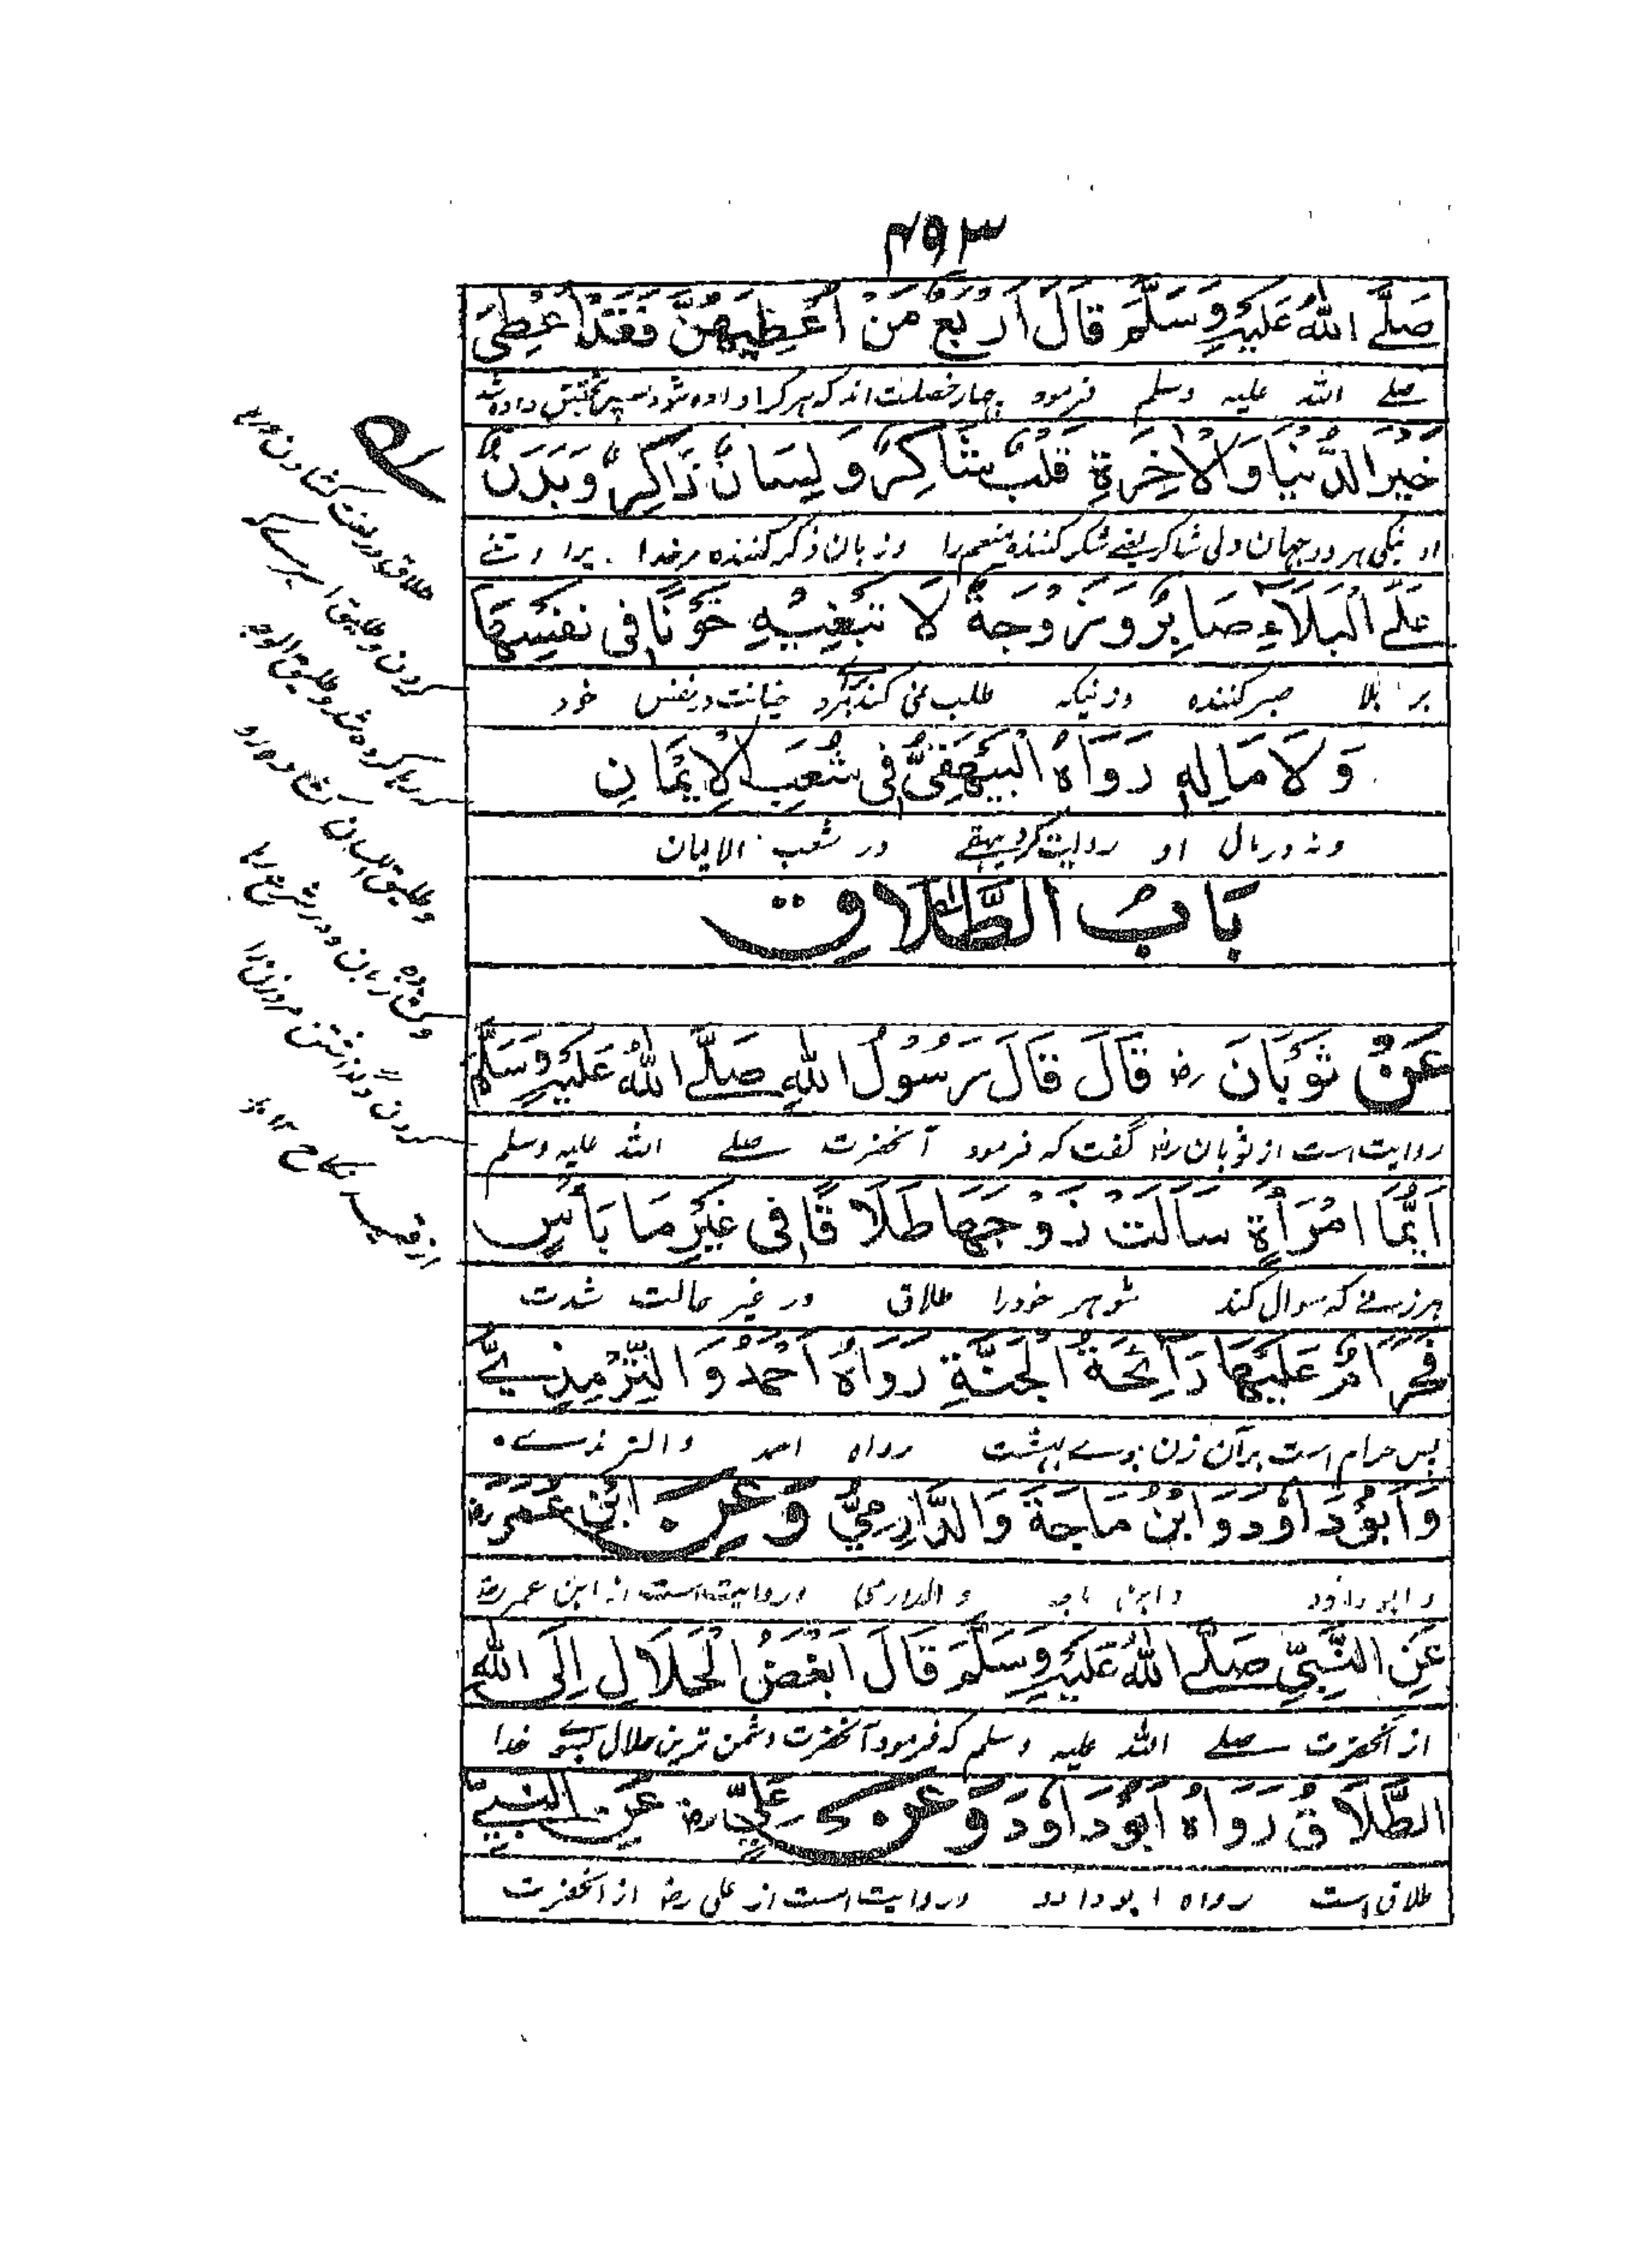 ۴۹۳
صَلَّے اللهُ عَلَیْهِ وَسَلَّمَ قَالَ اَرْبَعٌ مَنْ اُعْطِیَهُنَّ فَقَدْ اُعْطِیَ
صلے الله علیه وسلم فرمود چهار خصلت اند که هر کرا داده شود سپس بتحقیق داده شد
خَیْرَ الدُّنْیَا وَالْاٰخِرَةِ قَلْبٌ شَاکِرٌ وَ لِسَانٌ ذَاکِرٌ وَ بَدَنٌ
او نیکی هر دو جهان دلی شاکر یعنے شکر کننده منعم را وزبان ذکر کننده مر خدا را و تنے
عَلَی الْبَلَآءِ صَابِرٌ وَ زَوْجَةٌ لَا تَبْغِیْهِ خَوْنًا فِی نَفْسِهَا
بر بلا صبر کننده وزنیکه طلب نمی کند خیانت در نفس خود
وَ لَا مَالِهٖ رَوَاهُ الْبَیْهَقِیُّ فِی شُعَبِ الْاِیْمَانِ
ونه در مال او روایت کرد بیهقے در شعب الایمان
بَابُ الطَّلَاقِ
عَنْ ثَوْبَانَ رض قَالَ قَالَ رَسُوْلُ اللهِ صَلَّے اللهُ عَلَیْهِ وَسَلَّمَ
روایت است از ثوبان رض گفت که فرمود آنحضرت صلے الله علیه وسلم
اَیُّمَا امْرَاَةٍ سَاَلَتْ زَوْجَهَا طَلَاقًا فِی غَیْرِ مَا بَأْسٍ
هر زنے که سوال کند شوهر خود را طلاق در غیر حالت شدت
فَحَرَامٌ عَلَیْهَا رَآئِحَةُ الْجَنَّةِ رَوَاهُ اَحْمَدُ وَ التِّرْمِذِیُّ
پس حرام است بر آن زن بوے بهشت رواه احمد و الترمذے
وَ اَبُوْ دَاوٗدَ وَ ابْنُ مَاجَةَ وَ الدَّارِمِیُّ وَ عَنِ ابْنِ عُمَرَ رض
و ابو داود و ابن ماجه و الدارمی وروایت است از ابن عمر رض
عَنِ النَّبِیِّ صَلَّے اللهُ عَلَیْهِ وَسَلَّمَ قَالَ اَبْغَضُ الْحَلَالِ اِلَی اللهِ
از آنحضرت صلے الله علیه وسلم که فرمود آنحضرت دشمن ترین حلال بسوے خدا
الطَّلَاقُ رَوَاهُ اَبُوْ دَاوٗدَ وَ عَنْ عَلِیٍّ رض عَنِ النَّبِیِّ
طلاق است رواه ابو داود وروایت است از علی رض از آنحضرت
طلاق در لغت کشادن
کردن و طلیق
و طلیق اللسان
از قید نکاح ۱۲